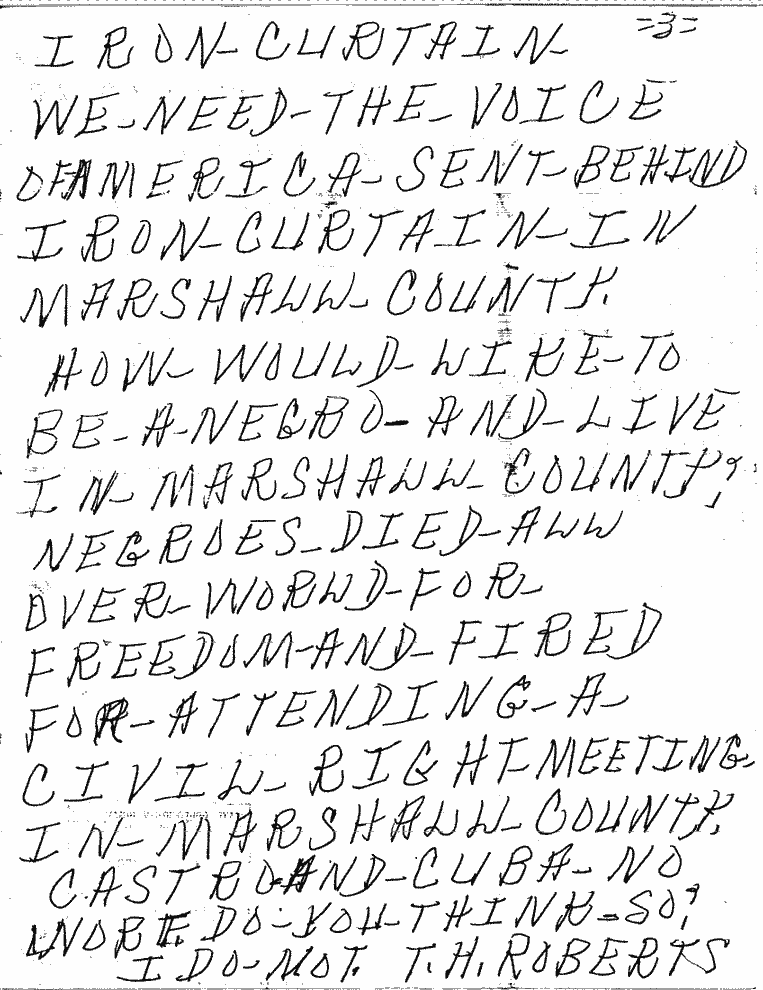 =3=
IRON-CURTAIN-
WE-NEED-THE-VOICE
OF AMERICA-SENT-BEHIND
IRON-CURTAIN-IN
MARSHALL-COUNTY.
HOW-WOULD-LIKE-TO
BE-A-NEGRO-AND-LIVE
IN-MARSHALL-COUNTY?
NEGROES-DIED-ALL
OVER-WORLD-FOR-
FREEDOM-AND-FIRED
FOR-ATTENDING-A-
CIVIL-RIGHT-MEETING.
IN-MARSHALL-COUNTY.
CASTRO-AND-CUBA-NO
WORE. DO-YOU-THINK-SO?
I DO-NOT. T.H. ROBERTS